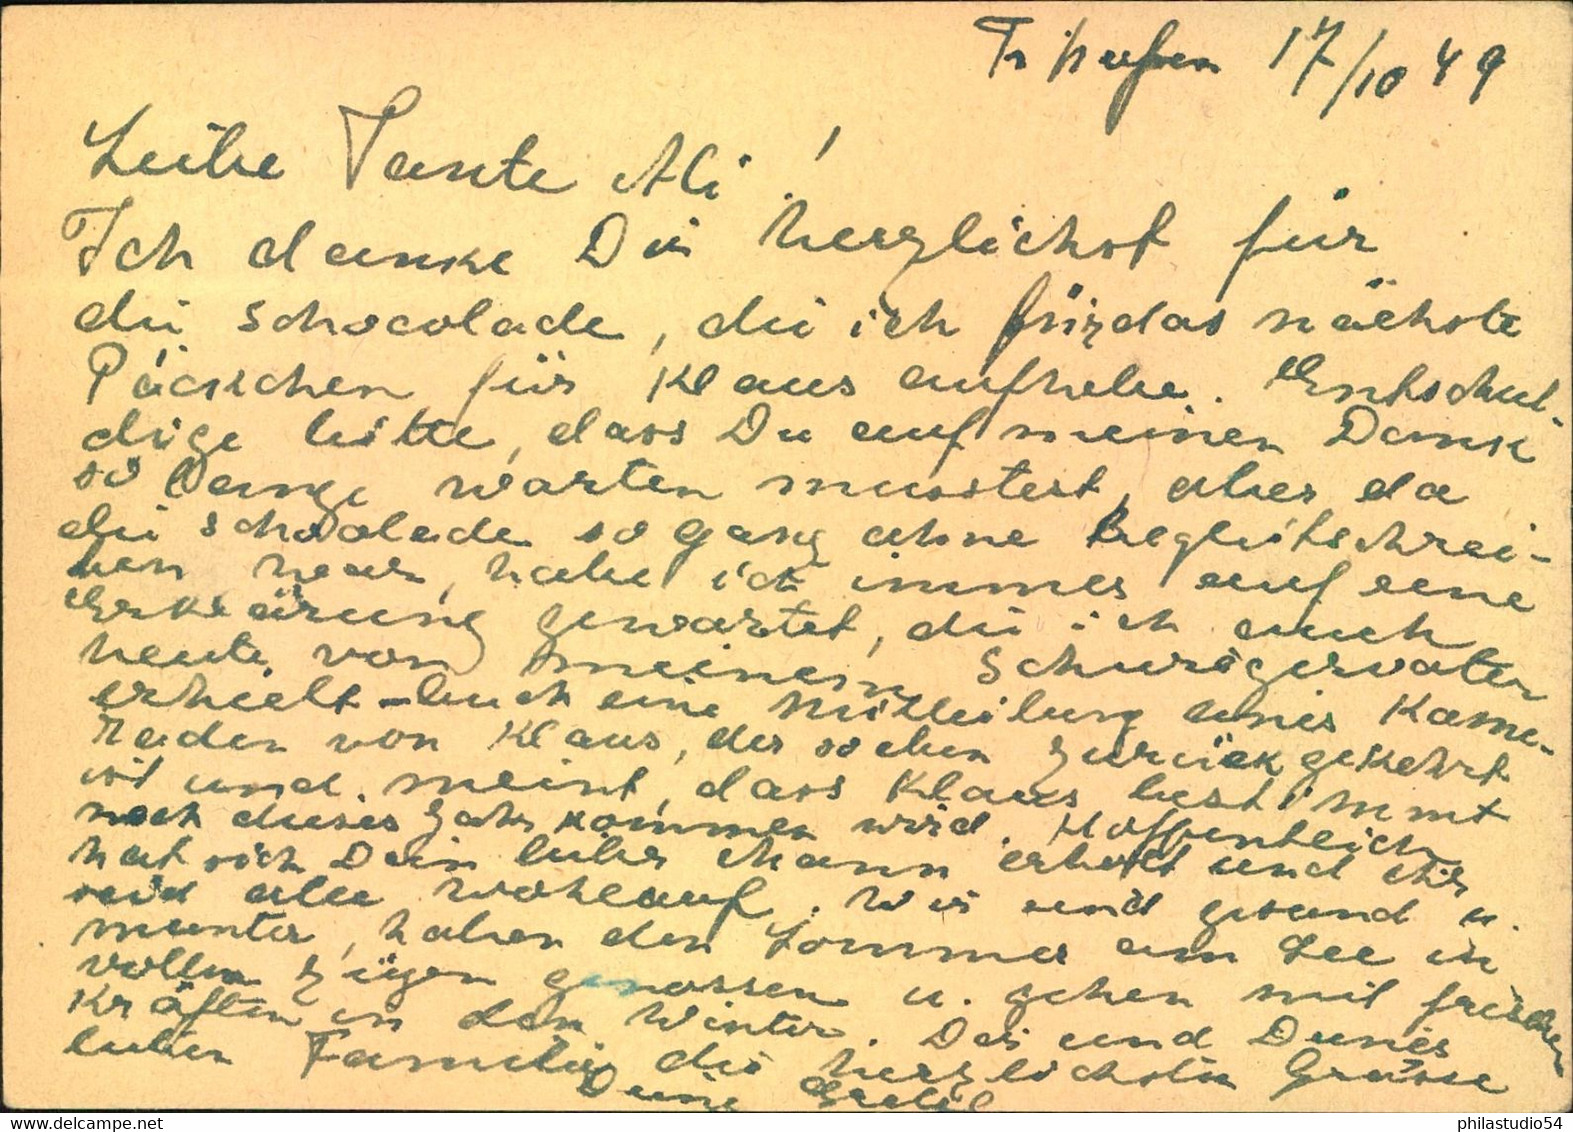 17/10 49
Liebe Tante Ali!
Ich danke Dir herzlichst für
die Schocolade, die ich für das nächste
Päckchen für Klaus aufhebe. Entschul-
dige bitte, dass Du auf meinen Dank
so lange warten musstest, aber da
die Schocolade so ganz ohne Begleitschrei-
ben kam, habe ich immer auf eine
Erklärung gewartet, die ich auch
heute von meinem Schwiegervater
erhielt – auch eine Mitteilung eines Kame-
raden von Klaus, der soeben zurückgekehrt
ist und meint, dass Klaus bestimmt
noch dieses Jahr kommen wird. Hoffentlich
hat sich Dein lieber Mann erholt und Ihr
seid alle wohlauf. Wir sind gesund u.
munter, haben den Sommer am See in
vollen Zügen genossen u. gehen mit frischen
Kräften in den Winter. Dir und Deiner
lieben Familie die herzlichsten Grüsse
Deine
philastudio54